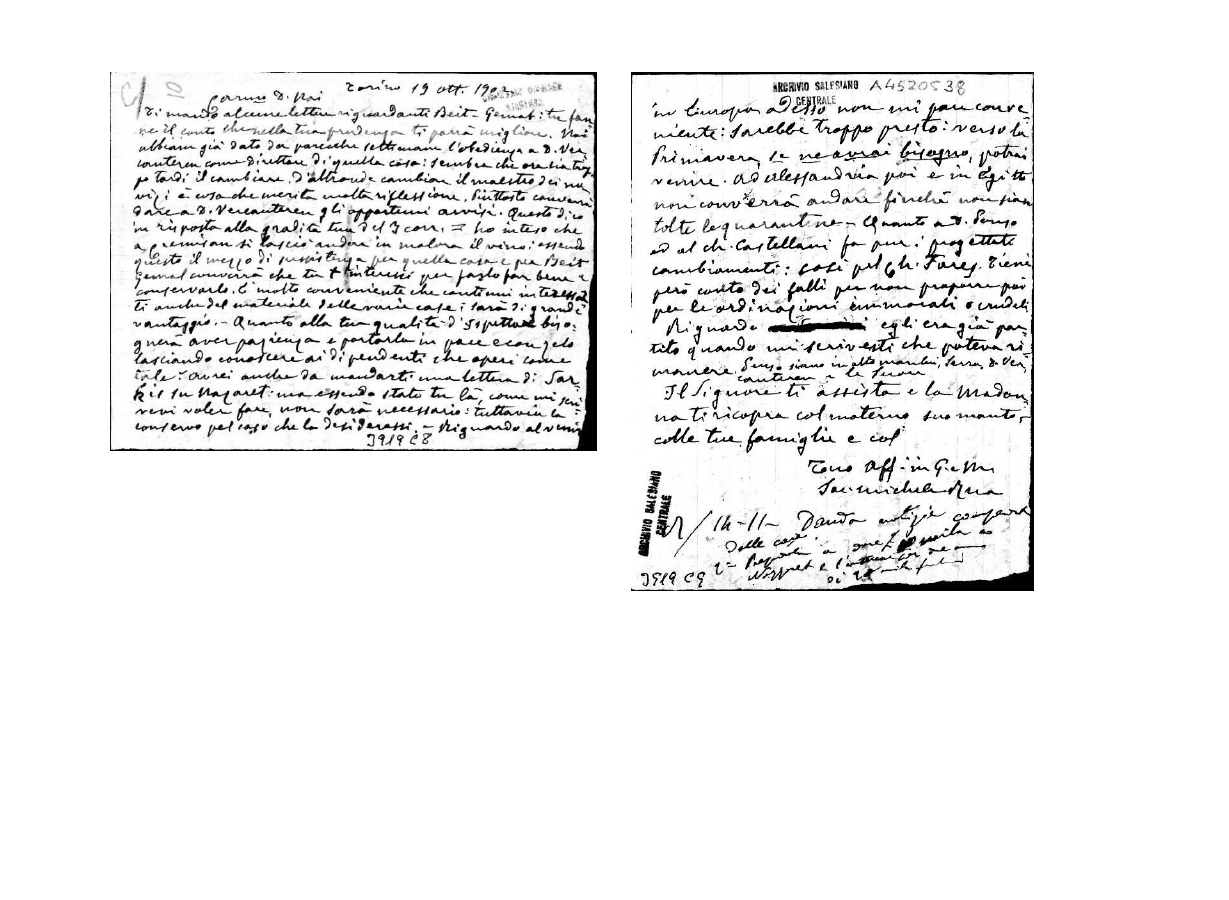 Torino 19 ott. 1902
Car.mo D. Nai
Ti mando alcune lettere riguardanti Beit-Gemal: tu fan
ne il conto che nella tua prudenza ti parrà migliore. Noi
abbiam già dato da parecchie settimane l'obedienza a D. Ver
cauteren come direttore di quella casa: sembra che ora sia trop
po tardi il cambiare. D'altronde cambiar il maestro dei no
vizi è cosa che merita molta riflessione. Piuttosto converrà
dare a D. Vercauteren gli opportuni avvisi. Questo dico
in risposta alla gradita tua del 7 corr. = ho inteso che
a Cremisan si lasciò andare in malora il vino: essendo
questo il mezzo di sussistenza per quella casa e per Beit
Gemal converrà che tu t'interessi per farlo far bene e
conservarlo. È molto conveniente che continui interessar
ti anche del materiale delle varie case: sarà di grande
vantaggio. - Quanto alla tua qualità d'Ispettore biso:
gnerà aver pazienza e portarla in pace e con zelo
lasciando conoscere ai dipendenti che operi come
tale: Avrei anche da mandarti una lettera di Sar
kis su Nazaret: ma essendo stato tu là, come mi scri
vevi voler fare, non sarà necessario: tuttavia la
conservo pel caso che la desiderassi. - Riguardo al venir
3919 C8
ARCHIVIO SALESIANO
CENTRALE
A4520538
in Europa adesso non mi pare conve-
niente: sarebbe troppo presto: verso la
Primavera, se ne avrai bisogno, potrai
venire. Ad Alessandria poi e in Egitto
non converrà andare finchè non sian
tolte le quarantene - Quanto a D.
ed al ch. Castellani fa pur i progettati
cambiamenti: così pel Ch. Fares. Tieni
però conto dei falli per non proporre poi
per le ordinazioni immorali o crudeli
Riguardo egli era già par
tito quando mi scrivesti che poteva ri
manere.
Il Signore ti assista e la Madon
na ti ricopra col materno suo manto,
colle tue famiglie e col
Tuo Aff. in G. e M.
Sac. Michele Rua
14-11- Danda notizie
delle case.
ARCHIVIO SALESIANO
CENTRALE
3919 C9